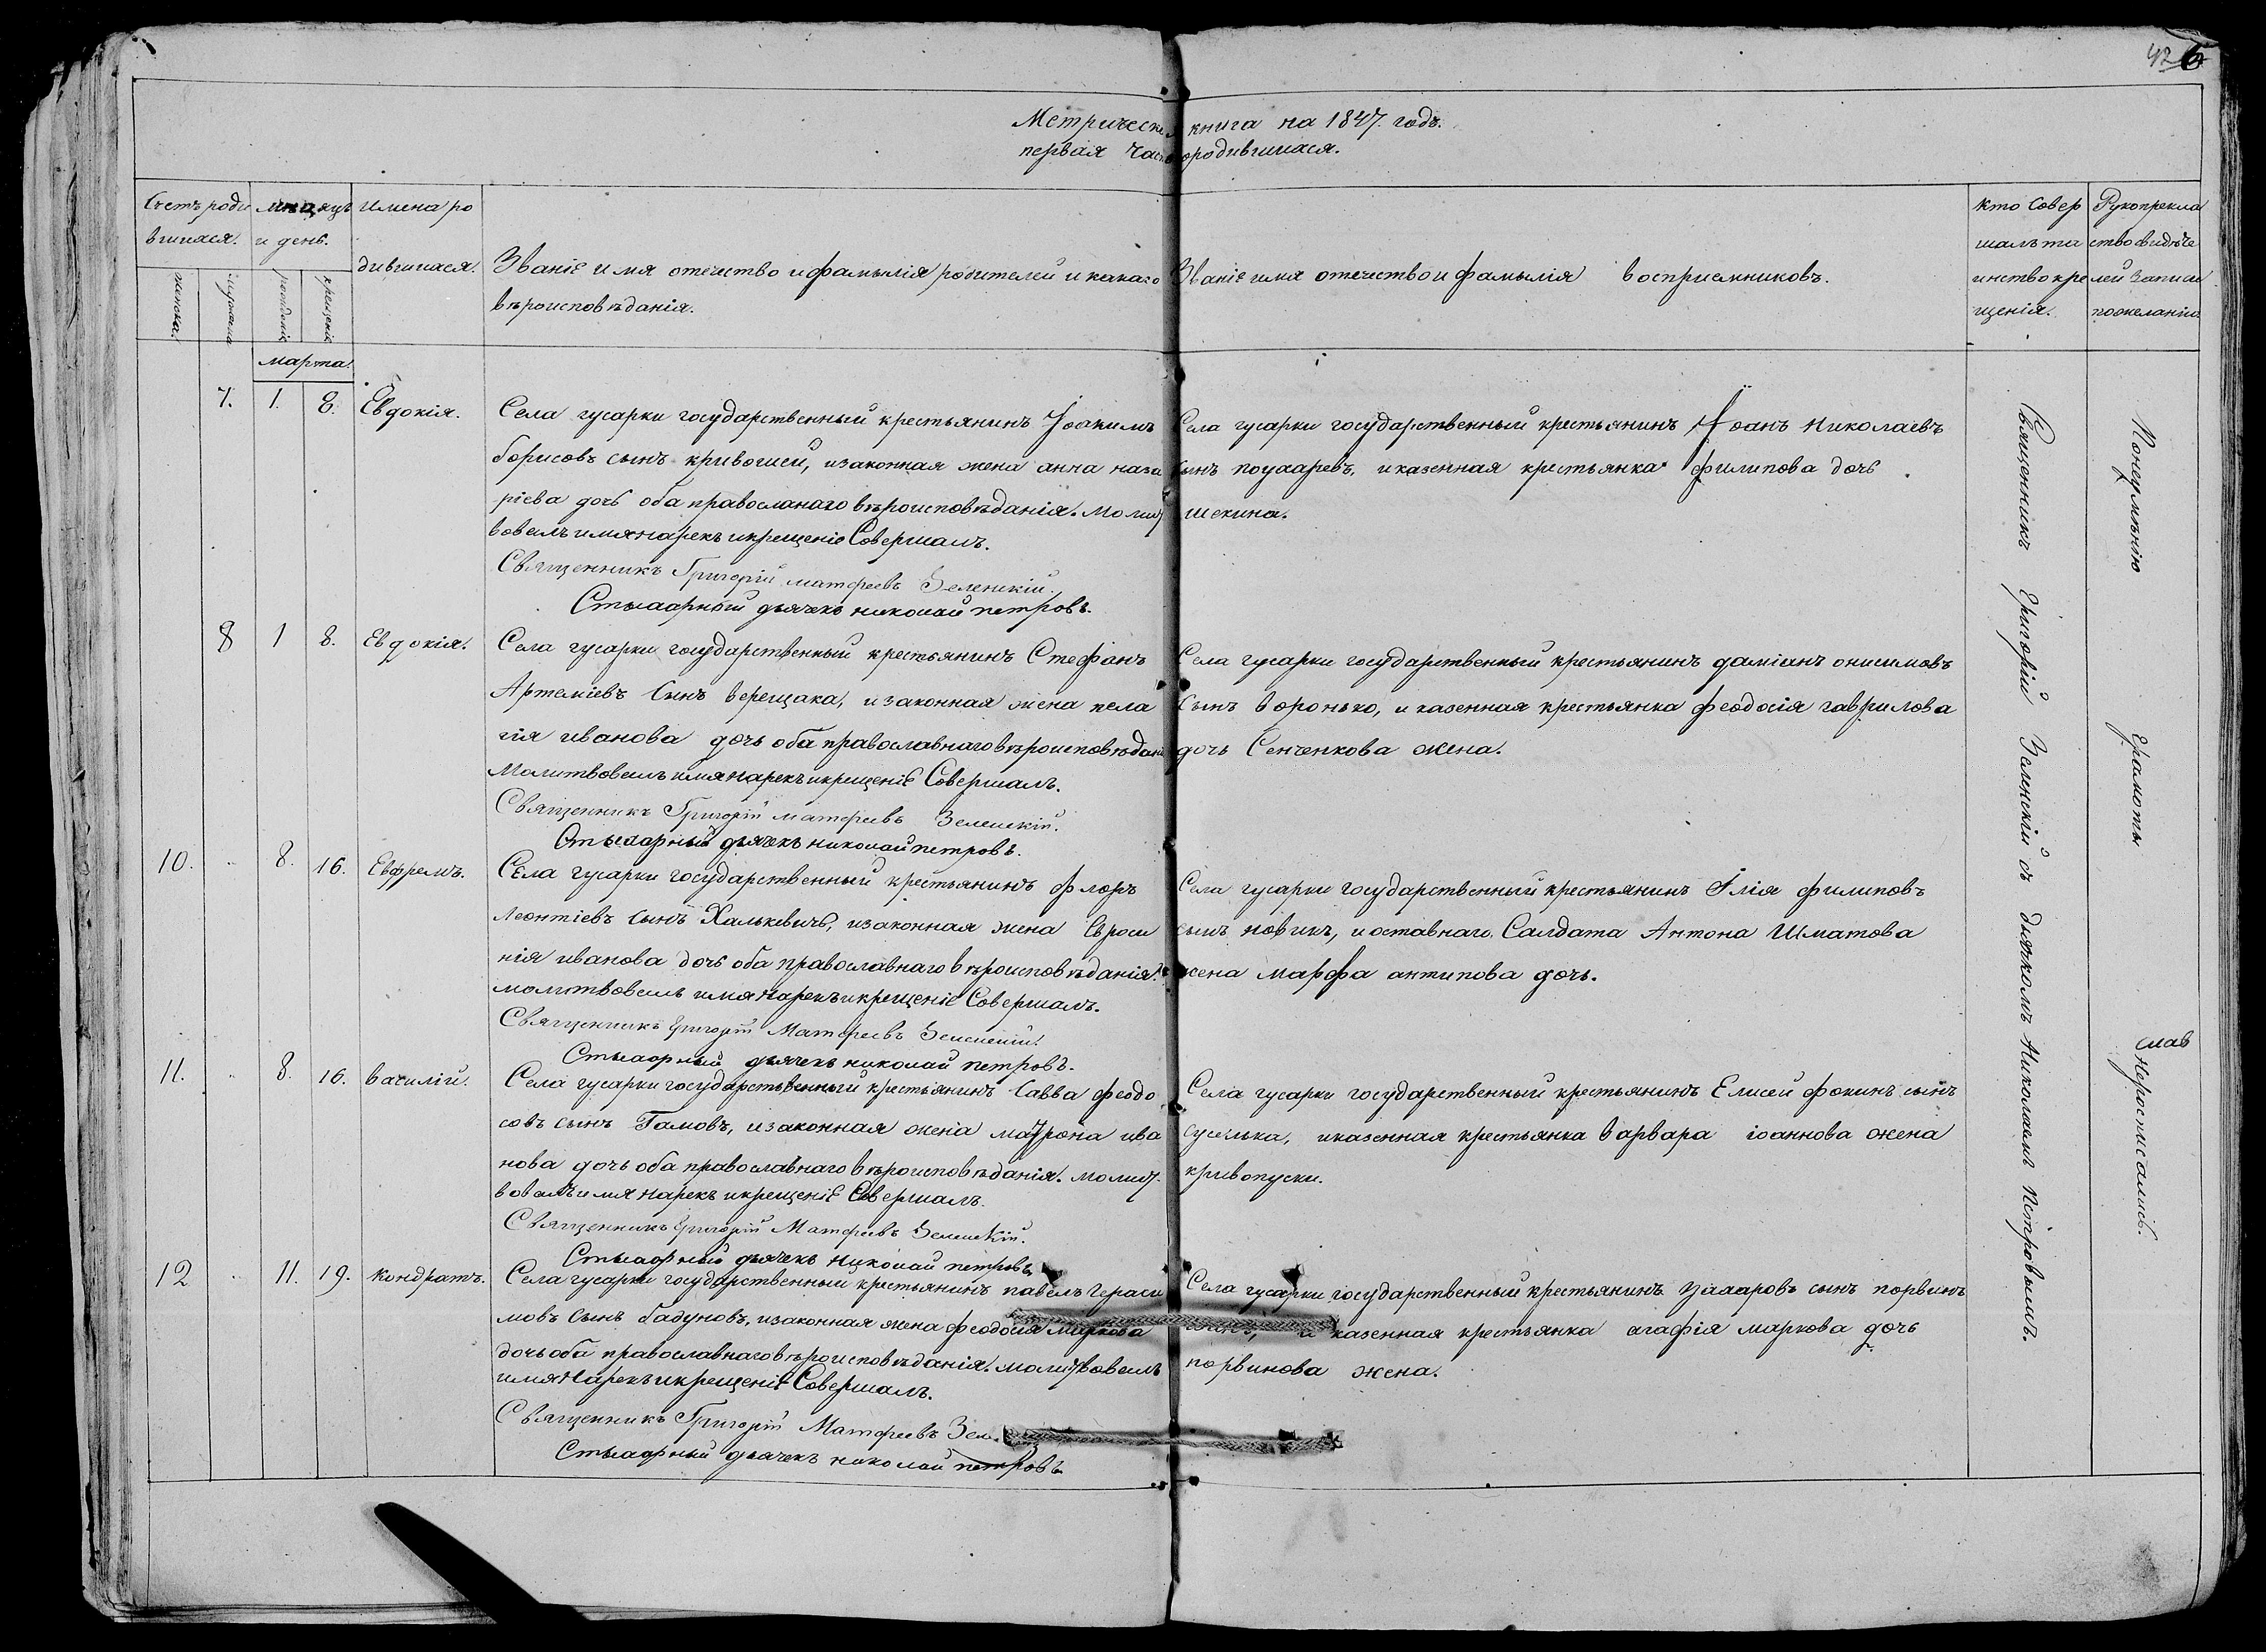 426
Метрическая книга на 1847. годъ.
первая часть ородившихся.
Счетъ роди
вшихся.
мѣсяцъ
и день.
Имена ро
дившихся.
Званіе имя отечество и фамылія родителей и какаго
вѣроисповѣданія.
Званіе имя отечество и фамылія воспріемниковъ.
кто Совер
шалъ та
инство кре
щенія.
Рукоприкла
ство свидѣте
лей записи
пожеланію
женска.
рожденія
крещенія
марта.
7. 1. 8. Евдокія.
Села гусарки государственный крестьянинъ Іоакимъ
борисовъ сынъ кривошей, изаконная жена анна наза
ріева дочь оба православнаго вѣроисповѣданія. молит
вовалъ имя нарекъ икрещеніе Совершалъ.
Священникъ Григорій матфеевъ Зеленскій.
дьячекъ николай петровъ.
Села гусарки государственный крестьянинъ Іоанъ Николаевъ
сынъ поухаревъ, иказенная крестьянка филипова дочь
шекина.
8 1 8. Евдокія.
Села гусарки государственный крестьянинъ Стефанъ
Артеміевъ Сынъ верещака, изаконная жена пела
гія иванова дочь оба православнаго вѣроисповѣдані
Молитвовалъ имя нарекъ икрещеніе Совершалъ.
Священникъ Григорій матфеевъ Зеленскій.
дьячекъ николай петровъ.
Села гусарки государственный крестьянинъ даміанъ онисимовъ
Сынъ воронько, и казенная крестьянка феодосія гаврилова
дочь Сенченкова жена.
10. 8. 16. Евфремъ.
Села гусарки государственный крестьянинъ флоръ
леонтіевъ сынъ Халькевичь, изаконная жена Евроси
нія иванова дочь оба православнаго вѣроисповѣданія.
молитвовалъ имя нарекъ икрещеніе Совершалъ.
Священникъ Григорій Матфеевъ Зеленскій.
дьячекъ николай петровъ.
Села гусарки государственный крестьянинъ Илія филиповъ
сынъ новикъ, и оставнаго Салдата Антона Шматова
жена марфа антипова дочь.
11. 8. 16. василій.
Села гусарки государственный крестьянинъ Савва феодо
совъ сынъ Гамовъ, изаконная жена матрона ива
нова дочь оба православнаго вѣроисповѣданія. молит.
вовалъ имя нарекъ икрещеніе Совершалъ.
Священникъ Григорій Матфеевъ Зеленскій.
дьячекъ николай петровъ
Села гусарки государственный крестьянинъ Елисей фокинъ сынъ
суселька, иказенная крестьянка варвара іоаннова жена
кривопуски.
12 11. 19. Кондратъ.
Села гусарки государственный крестьянинъ павелъ Гераси
мовъ сынъ бадуновъ, изаконная жена феодосія маркова
дочь оба православнаго вѣроисповѣданія. молитвовалъ
имя нарекъ икрещеніе Совершалъ.
Священникъ Григорій Матфеевъ Зел
дьячекъ николай петровъ
Села гусарки государственный крестьянинъ сынъ порвинъ
и казенная крестьянка агафія маркова дочь
порвинова жена.
Священникъ Григорій Зеленскій съ дьячкомъ Николаемъ Петровымъ.
Понеумѣнію Грамоты
неросписались.